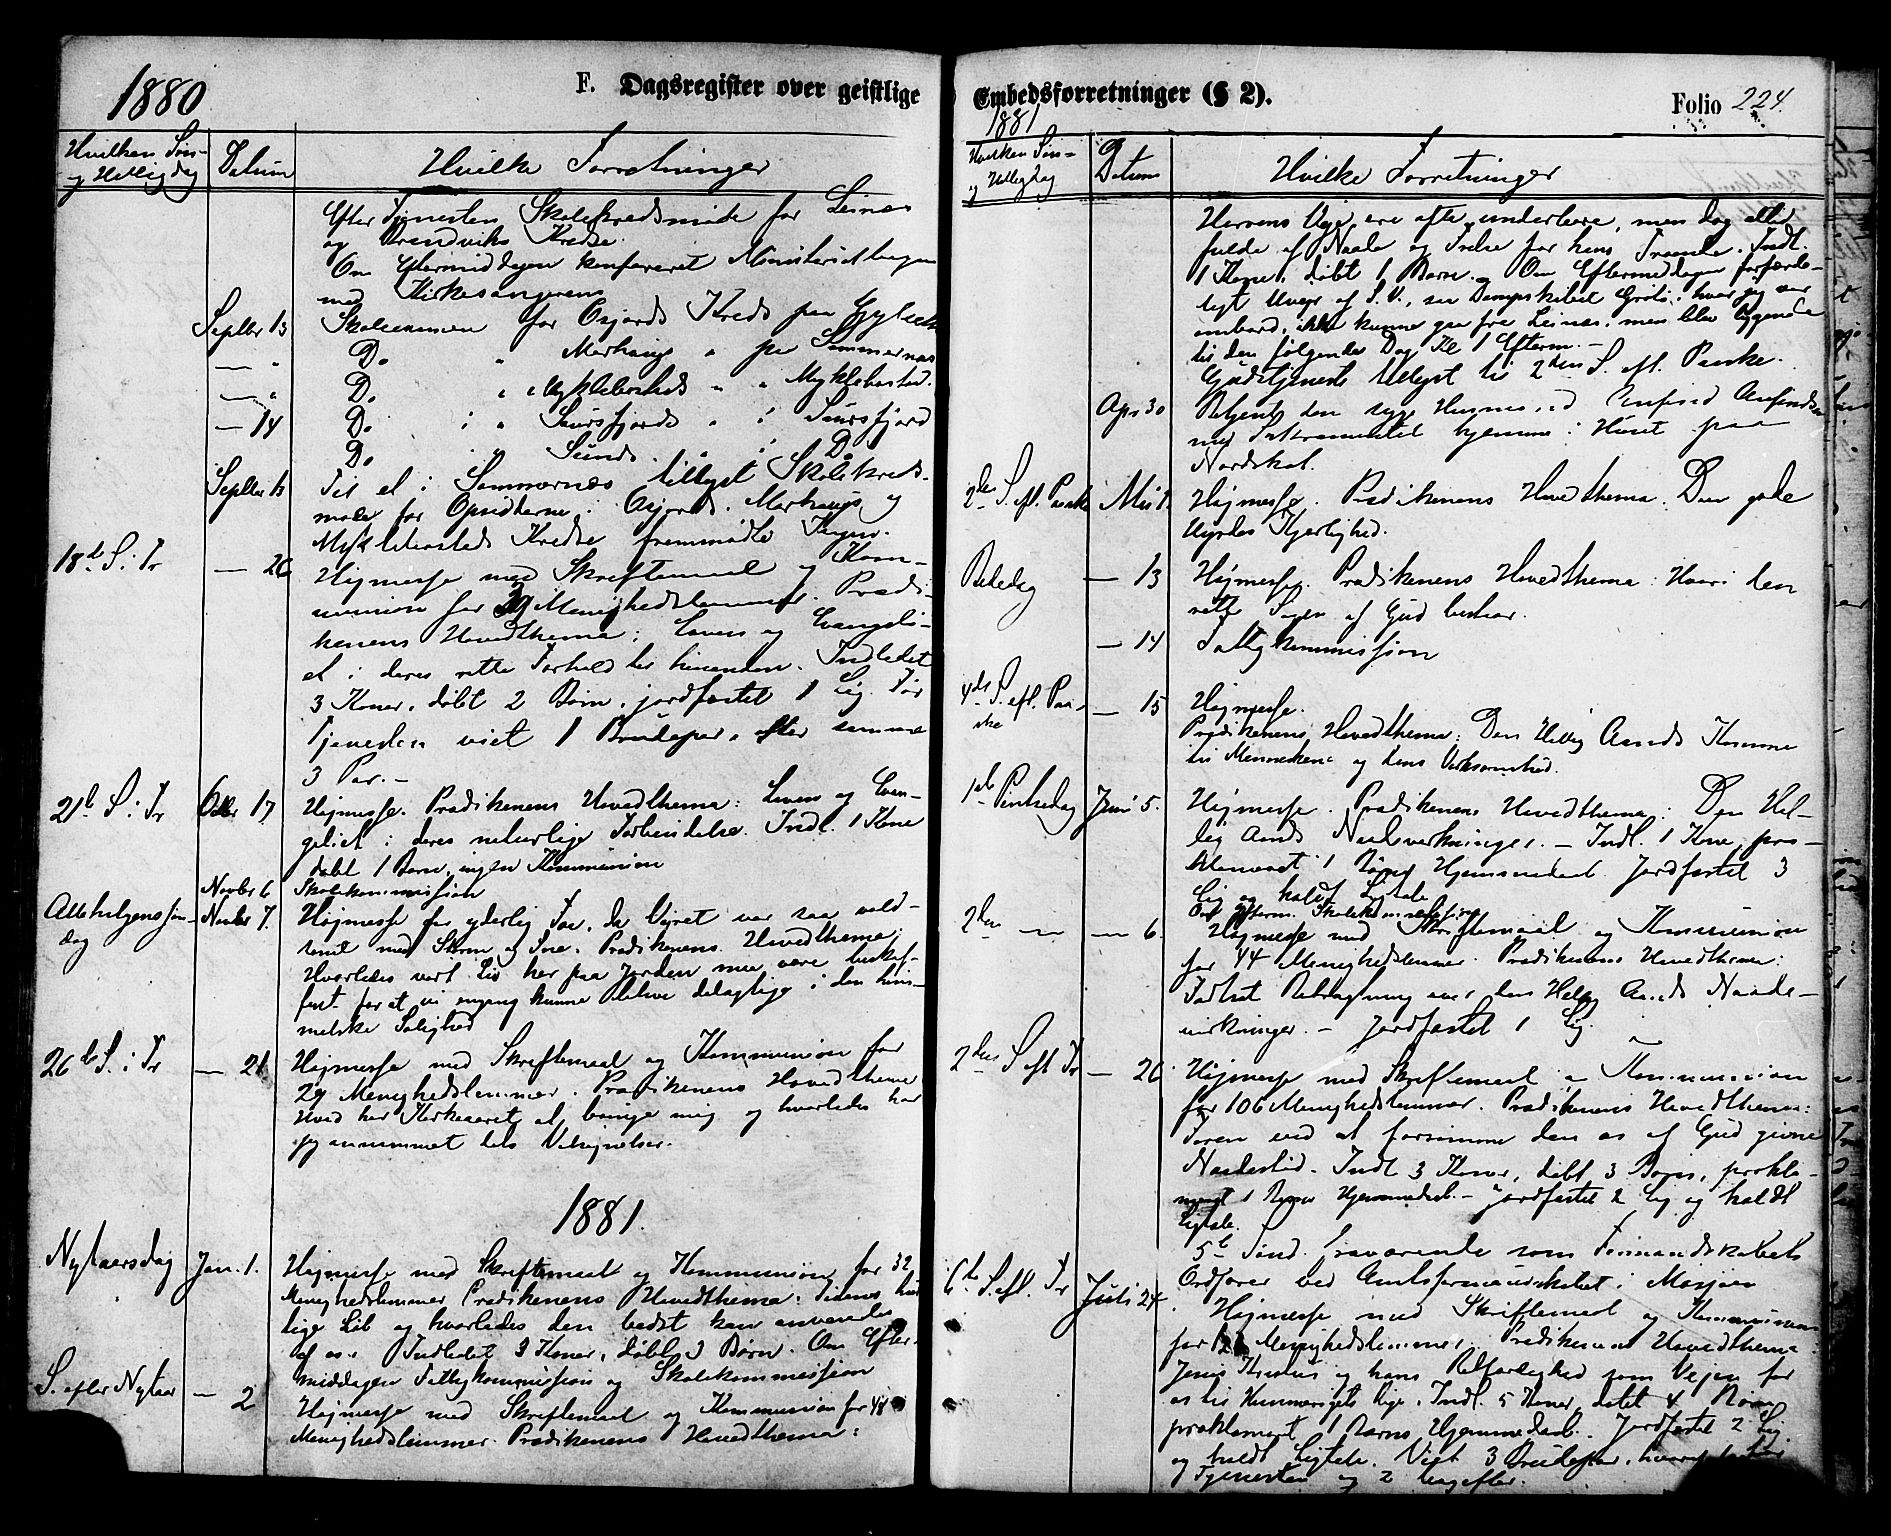 1880
F. Dagsregister over geistlige
Hvilken Søn-
og Helligdag
Datum
Hvilke Forretninger
Efter Tjenesten Skolekredsmøde for Leines
og Brendviks Kredse.
Om Eftermiddagen konfereret Ministerialbogen
med Kirkesangeren
Septbr 13
Skoleexamen for Osjords Kreds paa
— "
Do " Markaugs " paa Sommernes
— "
Do " Myklebosteds " " Myklebostad.
— 14
Do " Saursfjords " i Saursfjord
Do " Sunds " i Do
Septbr 13
Til et i Sommernes tillyst Skolekreds-
møde for Opsidderne i Osjords, Markaugs og
Myklebosteds Kredse fremmødte Ingen.
18de S. i Tr
— 26
Høimesse med Skriftemaal og Kom-
munion for 39 Menighedslemmer. Prædi-
kenens Hovedthema: Loven og Evangeli-
et i deres rette Forhold til hinanden. Indledet
3 Koner, døbt 2 Børn, jordfæstet 1 Lig. Før
Tjenesten viet 1 Brudepar, efter samme
3 Par. -
21de S. i Tr
Octbr 17
Høimesse. Prædikenens Hovedthema: Loven og Evan-
geliet i deres naturlige Forbindelse. Indl. 1 Kone
døbt 1 Barn, ingen Kommunion
Novbr 6
Skolekommission
Allehelgensøn-
dag
Novbr 7.
Høimesse for yderlig Faa, da Veiret var saa vold-
somt med Storm og Sne. Prædikenens Hovedthema:
Hvorledes vort Liv her paa Jorden maa være beskaf-
fent for at vi engang kunne blive delagtige i den him-
melske Salighed
26de S. i Tr
— 21
Høimesse med Skriftemaal og Kommunion for
29 Menighedslemmer. Prædikenens Hovedthema
Hvad har Kirkeaaret at bringe mig og hvorledes har
jeg annammet dets Velsignelser.
1881.
Nytaarsdag
Jan. 1.
Høimesse med Skriftemaal og Kommunion for 32
Menighedslemmer Prædikenens Hovedthema: Tidens
lige Løb og hvorledes den bedst kan anvendes
af os. Indledet 3 Koner, døbt 3 Børn. Om Efter-
middagen Fattigkommission og Skolekommission
S. efter Nytaar
— 2
Høimesse med Skriftemaal og Kommunion for 48
Menighedslemmer. Prædikenens Hovedthema:
Embedsforretninger (§ 2).
1881
Folio 224.
Hvilken Søn-
og Helligdag
Datum
Hvilke Forretninger
Herrens Veje ere ofte underlige, men dog altid
fulde af Naade og Frelse for hans Troende. Indl.
1 Kone, døbt 1 Barn. Om Eftermiddagen forfærde-
ligt Uveir af S.V., saa Dampskibet Grøtø, hvor jeg var
ombord, ikke kunne gaa fra Leines, men blev liggende
til den følgende Dag Kl 1 Efterm. -
Gudstjeneste tillyst til 2den S. eft. Paaske.
Apr 30
Betjent den syge Husmand Enfind Anfindsen
med Sakramentet hjemme i Huset paa
Nordskot.
2den S. eft. Paaske
Mai 1.
Høimesse. Prædikenens Hovedthema: Den gode
Hyrdes Kjærlighed.
Bededag
— 13
Høimesse. Prædikenens Hovedthema: Hvori den
rette Søgen af Gud bestaar.
— 14
Fattigkommission
4de S. eft. Paa-
ske
— 15
Høimesse.
Prædikenens Hovedthema: Den Hellig Aands Komme
til Menneskene og dens Virksomhed.
1ste Pintsedag
Juni 5.
Høimesse. Prædikenens Hovedthema: Den Hel-
lig Aands Naadevirkninger. — Indl. 1 Kone, pro-
klameret 1 Barns Hjemmedaab. Jordfæstet 3
Lig og holdt Ligtale
Om Efterm. Skolekommission
2den —
— 6.
Høimesse med Skriftemaal og Kommunion
for 44 Menighedslemmer. Prædikenens Hovedthema:
Fortsat Betragtning over den Hellig Aands Naade-
virkninger. — Jordfæstet 1 Lig.
2den S eft Tr
— 26.
Høimesse med Skriftemaal og Kommunion
for 106 Menighedslemmer. Prædikenens Hovedthema:
Faren ved at forsømme den os af Gud givne
Naadestid. Indl 3 Koner, døbt 3 Børn, prokla-
meret 1 Barns Hjemmedaab. — Jordfæstet 2 Lig og holdt
Ligtale.
5te Sønd. fraværende som Formandskabets
Ordfører ved Amtsformandskabet i Mosjøen
6te S. eft. Tr
Juli 24
Høimesse med Skriftemaal og Kommunion
for Menighedslemmer. Prædikenens Hovedthema
Jesus Kristus og hans Retfærdighed som Vejen for
os til Himmeriges Rige. Indl. 5 Koner, døbt 4 Børn
proklameret 1 Barns Hjemmedaab. Jordfæstet 2 Lig
og holdt Ligtale. Viet 3 Brudepar, hvoraf 1
Tjenesten og 2 bagefter.